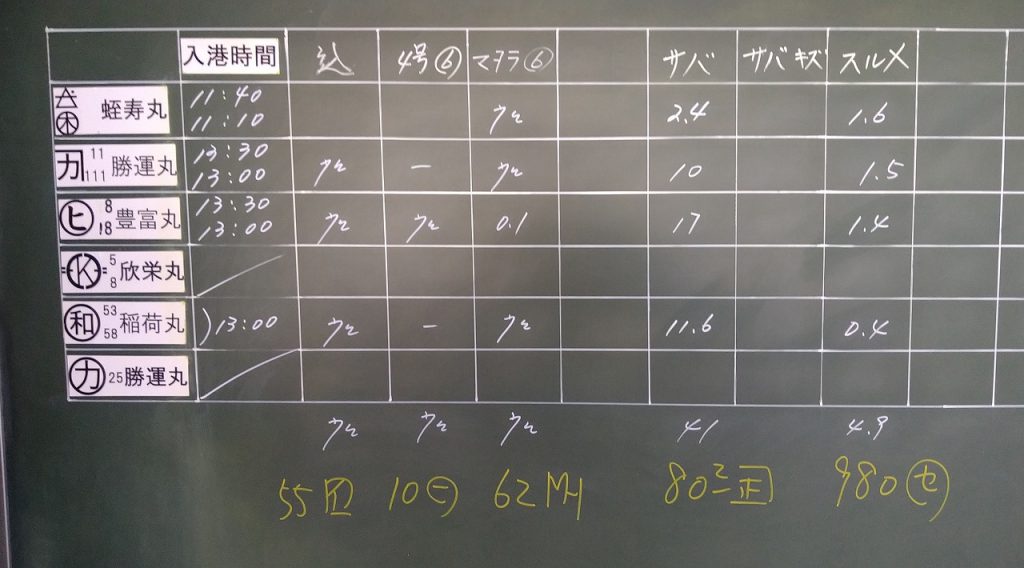 入港時間 込 4号⑥ マダラ⑥ サバ サバキズ スルメ
木 蛭寿丸 11:40 11:10 ケヒ 2.4 1.6
カ 11 111 勝運丸 13:30 13:00 ケヒ ー ケヒ 10 1.5
ヒ 8 18 豊富丸 13:30 13:00 ケヒ ケヒ 0.1 17 1.4
K 5 8 欣栄丸
和 53 58 稲荷丸 13:00 ケヒ ー ケヒ 11.6 0.4
カ 25 勝運丸
ケヒ ケヒ ケヒ 41 4.9
55 10 62 80 正 980 セ